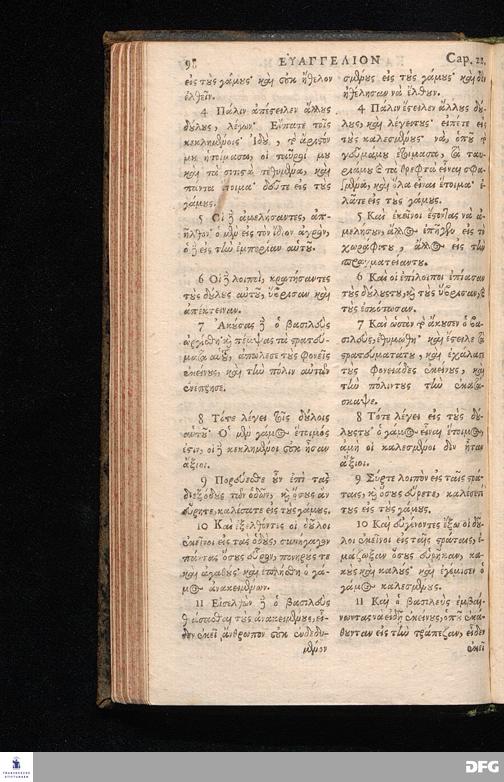 98 ΕΥΑΓΓΕΛΙΟΝ Cap. 22.
εἰς τοὺς γάμους· καὶ οὐκ ἤθελον
ἐλθεῖν.
4 Πάλιν ἀπέστειλεν ἄλλους
δούλους, λέγων· Εἴπατε τοῖς
κεκλημένοις· Ἰδοὺ, τὸ ἄριστόν
μου ἡτοίμασα, οἱ ταῦροί μου
καὶ τὰ σιτιστὰ τεθυμένα, καὶ
πάντα ἕτοιμα· δεῦτε εἰς τοὺς
γάμους.
5 Οἱ δὲ ἀμελήσαντες, ἀπ-
ῆλθον· ὁ μὲν εἰς τὸν ἴδιον ἀγρὸν,
ὁ δὲ εἰς τὴν ἐμπορίαν αὐτοῦ.
6 Οἱ δὲ λοιποὶ, κρατήσαντες
τοὺς δούλους αὐτοῦ, ὕβρισαν καὶ
ἀπέκτειναν.
7 Ἀκούσας δὲ ὁ βασιλεὺς
ὠργίσθη· καὶ πέμψας τὰ στρατεύ-
ματα αὐτοῦ, ἀπώλεσε τοὺς φονεῖς
ἐκείνους, καὶ τὴν πόλιν αὐτῶν
ἐνέπρησε.
8 Τότε λέγει τοῖς δούλοις
αὐτοῦ· Ὁ μὲν γάμος ἕτοιμός
ἐστιν, οἱ δὲ κεκλημένοι οὐκ ἦσαν
ἄξιοι.
9 Πορεύεσθε οὖν ἐπὶ τὰς
διεξόδους τῶν ὁδῶν, καὶ ὅσους ἂν
εὕρητε, καλέσατε εἰς τοὺς γάμους.
10 Καὶ ἐξελθόντες οἱ δοῦλοι
ἐκεῖνοι εἰς τὰς ὁδοὺς, συνήγαγον
πάντας ὅσους εὗρον, πονηρούς τε
καὶ ἀγαθούς· καὶ ἐπλήσθη ὁ γά-
μος ἀνακειμένων.
11 Εἰσελθὼν δὲ ὁ βασιλεὺς
θεάσασθαι τοὺς ἀνακειμένους, εἶ-
δεν ἐκεῖ ἄνθρωπον οὐκ ἐνδεδυ-
μένον
σμένους εἰς τοὺς γάμους· καὶ δὲν
ἠθέλησαν νὰ ἔλθουν.
4 Πάλιν ἔστειλεν ἄλλους δού-
λους, καὶ λέγει τους· εἰπέτε εἰς
τοὺς καλεσμένους· νὰ, ὁποῦ τὸ
γεῦμά μου ἑτοίμασα, τὰ ταυ-
ρία μου καὶ τὰ θρεφτὰ εἶναι σφα-
σμένα, καὶ ὅλα εἶναι ἕτοιμα· ἐ-
λᾶτε εἰς τοὺς γάμους.
5 Καὶ ἐκεῖνοι ἔστοντας νὰ ἀ-
μελήσουν, ἄλλος ἐπῆγεν εἰς τὸ
χωράφι του, ἄλλος εἰς τὴν
πραγματείαν του.
6 Καὶ οἱ ἐπίλοιποι ἐπίασαν
τοὺς δούλους του, καὶ τοὺς ὕβρισαν, καὶ
τοὺς ἐσκότωσαν.
7 Καὶ ὡσὰν τὸ ἄκουσεν ὁ βα-
σιλεὺς, ἐθυμώθη· καὶ ἔστειλε τὰ
στρατεύματά του, καὶ ἐχάλασε
τοὺς φονειάδες ἐκείνους, καὶ
τὴν πόλιν τους τὴν ἐκατά-
σκαψε.
8 Τότε λέγει εἰς τοὺς δού-
λους του· ὁ γάμος εἶναι ἕτοιμος,
ἀμὴ οἱ καλεσμένοι δὲν ἦταν
ἄξιοι.
9 Σύρτε λοιπὸν εἰς ταῖς στρά-
ταις, καὶ ὅσους εὕρετε, καλέσετέ
τους εἰς τοὺς γάμους.
10 Καὶ εὐγαίνοντες ἔξω οἱ δοῦ-
λοι ἐκεῖνοι εἰς ταῖς στράταις, ἐ-
μάζωξαν ὅσους εὕρηκαν, κα-
κοὺς καὶ καλούς· καὶ ἐγέμισεν ὁ
γάμος καλεσμένους.
11 Καὶ ὁ βασιλεὺς ἐμβαί-
νωντας νὰ εἰδῇ ἐκείνους, ὁποῦ ἐκά-
θουνταν εἰς τὴν τράπεζαν, εἶδεν
ἐκεῖ
FRANCKESCHE STIFTUNGEN
DFG